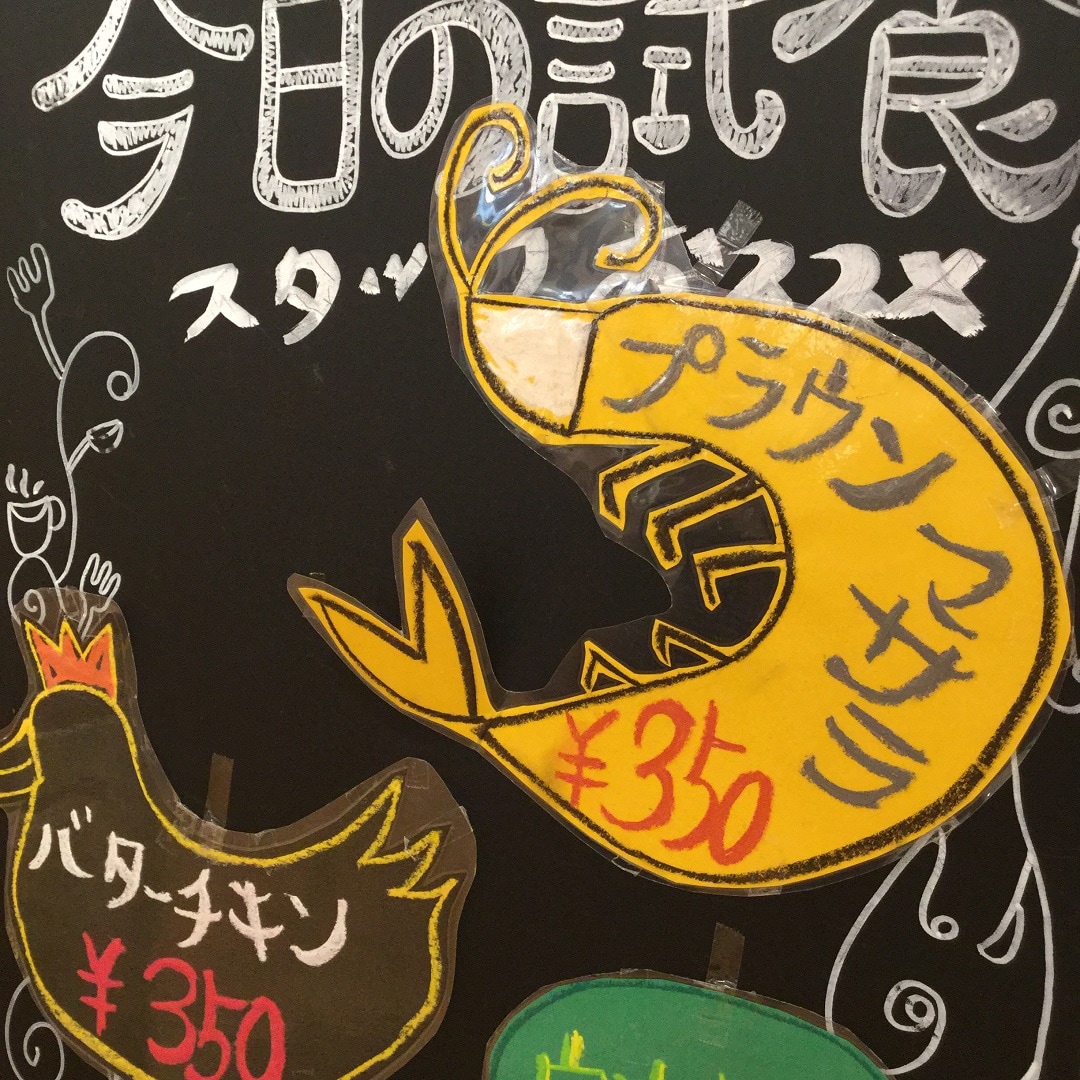 今日の試食
スタッフ オススメ
プラウンマサラ
¥350
バターチキン
¥350